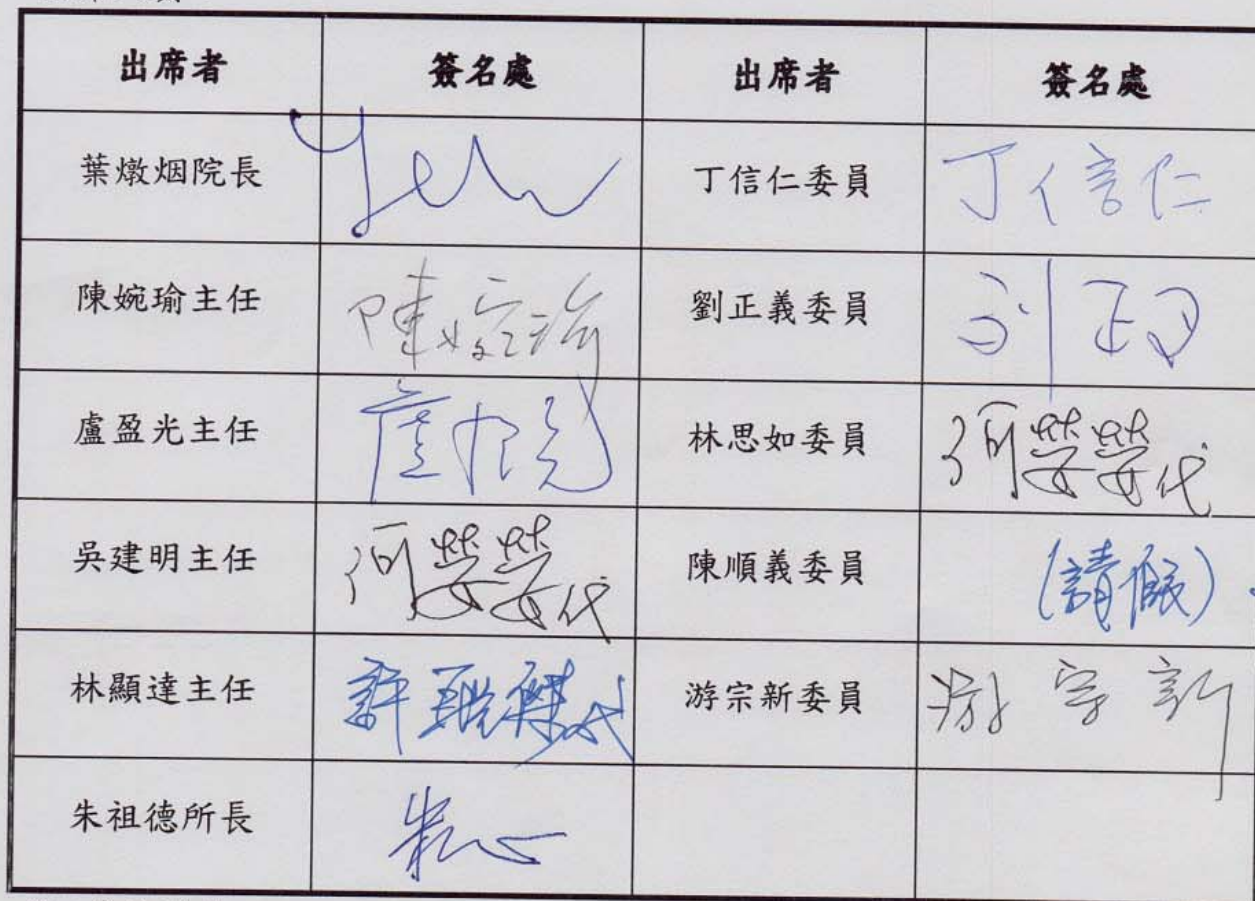 出席者 簽名處 出席者 簽名處
葉燉烟院長 Yeh 丁信仁委員 丁信仁
陳婉瑜主任 陳婉瑜 劉正義委員 刘正义
盧盈光主任 盧盈光 林思如委員 何嬮嬮代
吳建明主任 代 陳順義委員 (請假)
林顯達主任 許聰傑代 游宗新委員 游宗新
朱祖德所長